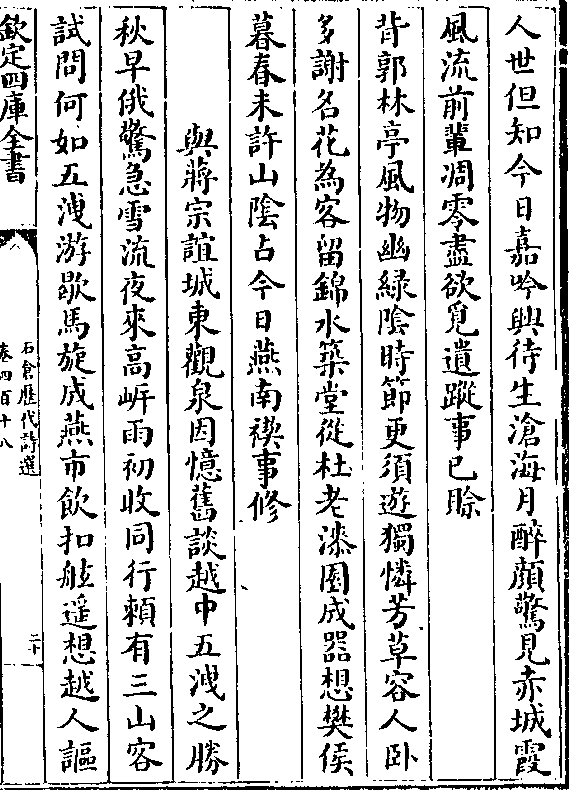 人世但知今日嘉吟興待生滄海月醉顔驚見赤城霞
風流前輩凋零盡欲覓遺蹤事已賒
背郭林亭風物幽緑陰時節更須遊獨憐芳草容人卧
多謝名花為客留錦水築堂從杜老漆園成器想樊侯
暮春未許山陰占今日燕南禊事修
與蔣宗誼城東觀泉因憶舊談越中五洩之勝
秋早俄驚急雪流夜來高㟁雨初收同行賴有三山客
試問何如五洩游歇馬旋成燕市飲扣舷遥想越人謳
欽定四庫全書
石倉歷代詩選
卷四百十八
二十